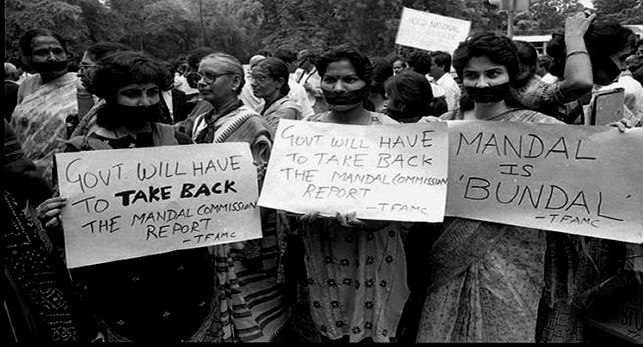 GOVT. WILL HAVE
TO TAKE BACK
THE MANDAL COMMISSION
REPORT
-TFAMC
GOVT. WILL HAVE
TO TAKE BACK
THE MANDAL COMMISSION
REPORT
-TFAMC
MANDAL
IS
'BUNDAL'
-TFAMC
NATIONAL